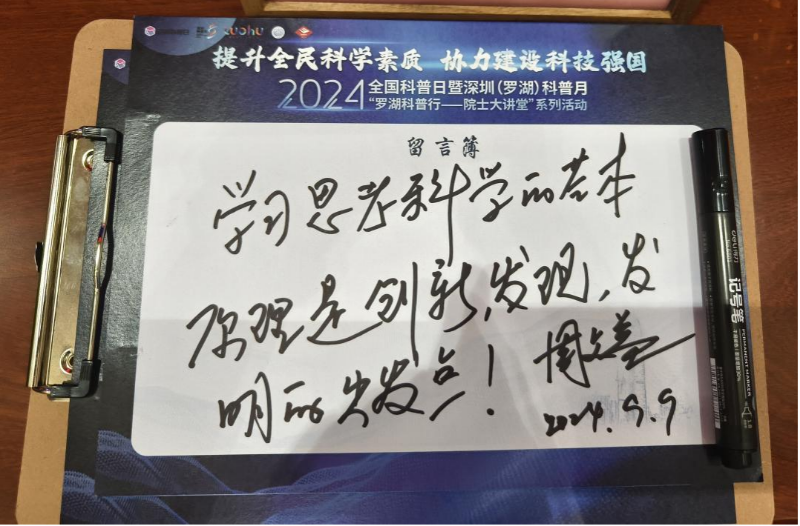 luohu
提升全民科学素质 协力建设科技强国
2024 全国科普日暨深圳（罗湖）科普月
“罗湖科普行——院士大讲堂”系列活动
留言簿
学习思考科学的基本
原理是创新,发现,发
明的出发点！
2024.9.9
记号笔
PERMANENT MARKER